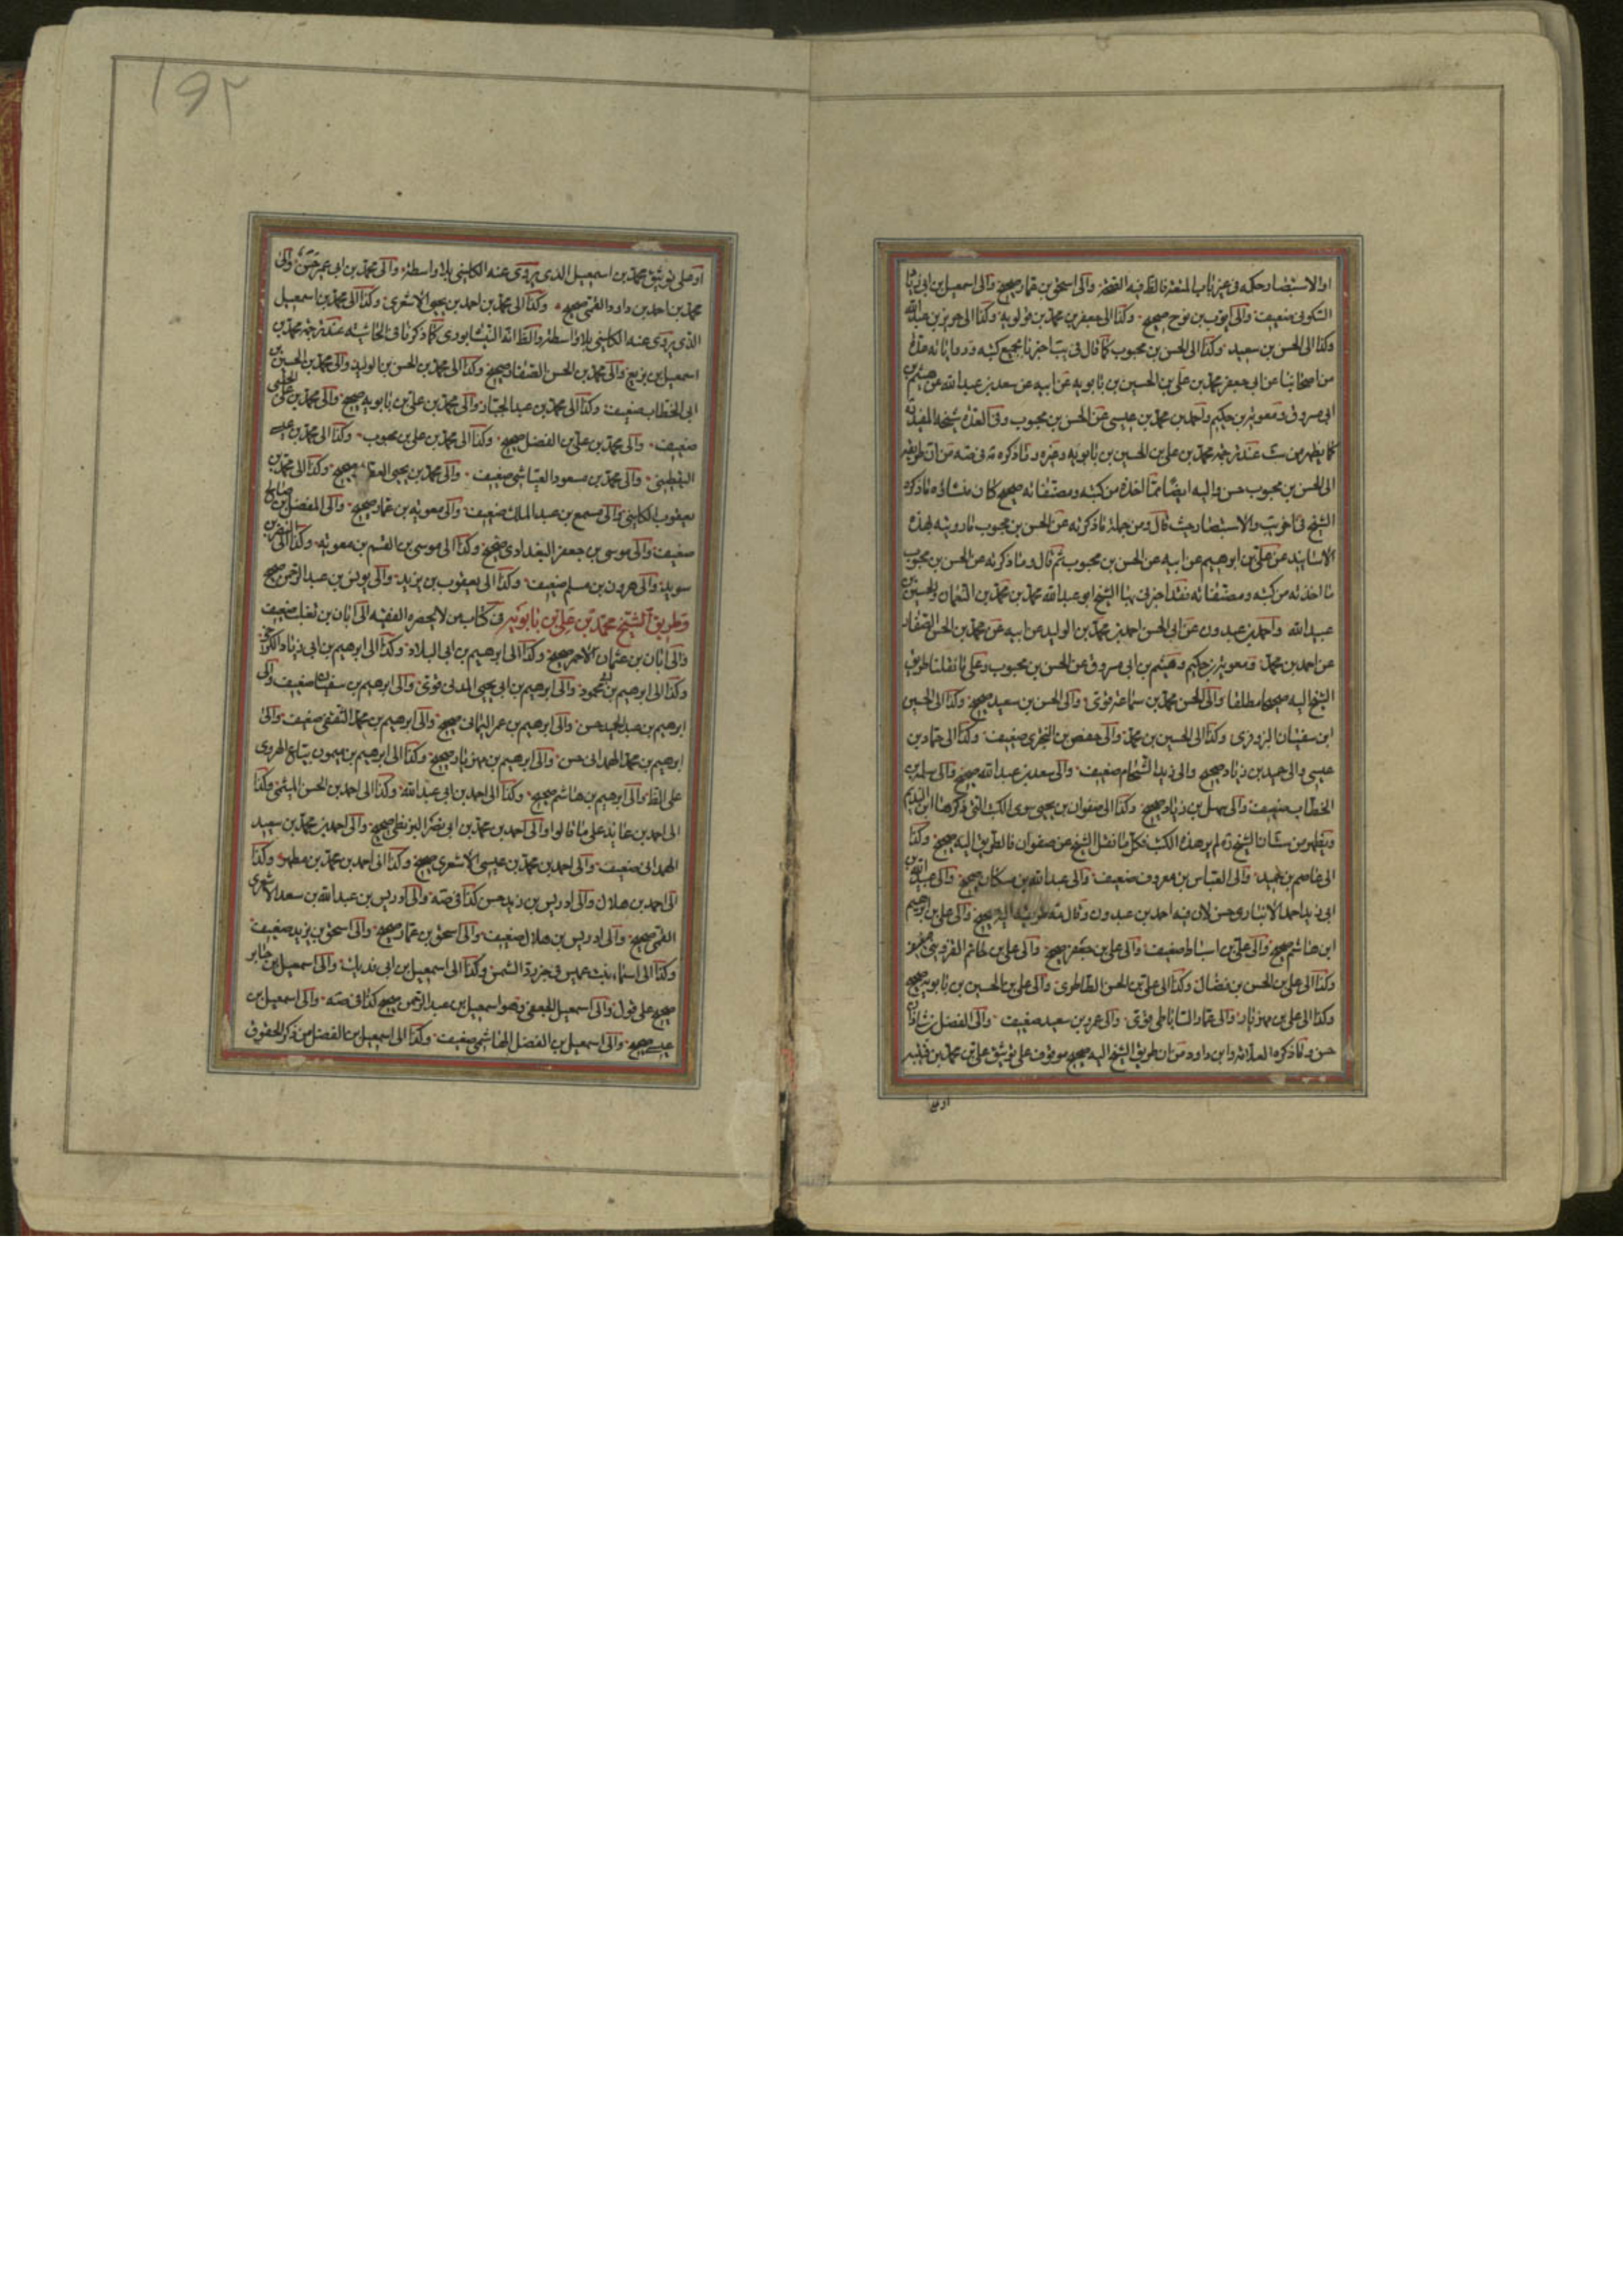 او الاستبصار حكمه في غير باب المتعة فالظ فيه الصحة والى اسحق بن عمار صحيح والى اسمعيل بن ابي زياد
السكوني ضعيف والى ايوب بن نوح صحيح وكذا الى جعفر بن محمد بن قولويه وكذا الى حريز بن عبد الله
وكذا الى الحسن بن سعيد وكذا الى الحسن بن محبوب كما قال في ست اخبرنا بجميع كتبه ورواياته عدة
من اصحابنا عن ابي جعفر محمد بن علي بن الحسين بن بابويه عن ابيه عن سعد بن عبد الله عن هيثم بن
ابي مسروق ومعوية بن حكيم واحمد بن محمد بن عيسى عن الحسن بن محبوب وفي العدة شيخنا المفيد
كما يظهر من ست عند ترجمة محمد بن علي بن الحسين بن بابويه وغيره وما ذكره مه في صه من ان طريقه
الى الحسن بن محبوب حسن واليه ايضا مما اخذه من كتبه ومصنفاته صحيح كان منشاؤه ما ذكره
الشيخ في اخر يب والاستبصار حيث قال ومن جملة ما ذكرته عن الحسن بن محبوب ما رويته بهذه
الاسانيد عن علي بن ابرهيم عن ابيه عن الحسن بن محبوب ثم قال وما ذكرته عن الحسن بن محبوب
ما اخذته من كتبه ومصنفاته فقد اخبرني بها الشيخ ابو عبد الله محمد بن محمد بن النعمان والحسين بن
عبيد الله واحمد بن عبدون عن ابي الحسن احمد بن محمد بن الوليد عن ابيه عن محمد بن الحسن الصفار
عن احمد بن محمد ومعوية بن حكيم وهيثم بن ابي مسروق عن الحسن بن محبوب وعلى ما نقلنا طريق
الشيخ اليه صحيحا مطلقا والى الحسن بن محمد بن سماعة قوى والى الحسن بن سعيد صحيح وكذا الى الحسين
ابن سفيان البزوفري وكذا الى الحسين بن محمد والى حفص بن البختري ضعيف وكذا الى حماد بن
عيسى والى حميد بن زياد صحيح والى زيد الشحام ضعيف والى سعد بن عبد الله صحيح والى سلمة بن
الخطاب ضعيف والى سهل بن زياد صحيح وكذا الى صفوان بن يحيى سوى الكتب التي ذكرها ابن النديم
ويظهر من شان الشيخ ره لم ير هذه الكتب فكل ما نقل الشيخ عن صفوان فالطريق اليه صحيح وكذا
الى عاصم بن حميد والى العباس بن معروف ضعيف والى عبد الله بن مسكان صحيح والى عبيد الله بن
ابي زيد احمد الانباري حسن لان فيه احمد بن عبدون وقال مه طريقه اليه صحيح والى علي بن ابرهيم
ابن هاشم صحيح والى علي بن اسباط ضعيف والى علي بن جعفر صحيح والى علي بن حاتم القزويني
وكذا الى علي بن الحسن بن فضال وكذا الى علي بن الحسن الطاطري والى علي بن الحسين بن بابويه صحيح
وكذا الى علي بن مهزيار والى عمار الساباطي قوى والى عمرو بن سعيد ضعيف والى الفضل بن شاذان
حسن وما ذكره العلامة وابن داود من ان طريق الشيخ اليه صحيح موقوف على توثيق علي بن محمد بن قتيبة
او على
١٩٢
او على توثيق محمد بن اسمعيل الذي يروى عنه الكليني بلا واسطة والى محمد بن ابي عمير حسن والى
محمد بن احمد بن داود القمي صحيح وكذا الى محمد بن احمد بن يحيى الاشعري وكذا الى محمد بن اسمعيل
الذي يروى عنه الكليني بلا واسطة والظ انه النيشابوري كما ذكرنا في الحاشية عند ترجمة محمد بن
اسمعيل بن بزيع والى محمد بن الحسن الصفار صحيح وكذا الى محمد بن الحسن بن الوليد والى محمد بن الحسين بن
ابي الخطاب ضعيف وكذا الى محمد بن عبد الجبار والى محمد بن علي بن بابويه صحيح والى محمد بن علي الحلبي
ضعيف والى محمد بن علي بن الفضل صحيح وكذا الى محمد بن علي بن محبوب وكذا الى محمد بن عيسى
اليقطيني والى محمد بن مسعود العياشي ضعيف والى محمد بن يحيى العطار صحيح وكذا الى محمد بن
يعقوب الكليني والى مسمع بن عبد الملك ضعيف والى معوية بن عمار صحيح والى المفضل بن صالح
ضعيف والى موسى بن جعفر البغدادي صحيح وكذا الى موسى بن القسم بن معوية وكذا الى النضر بن
سويد والى هرون بن مسلم ضعيف وكذا الى يعقوب بن يزيد والى يونس بن عبد الرحمن صحيح
وطريق الشيخ محمد بن علي بن بابويه في كتاب من لا يحضره الفقيه الى ابان بن تغلب ضعيف
والى ابان بن عثمان الاحمر صحيح وكذا الى ابرهيم بن ابي البلاد وكذا الى ابرهيم بن ابي زياد الكرخي
وكذا الى ابرهيم بن ابي محمود والى ابرهيم بن ابي يحيى المدني قوى والى ابرهيم بن سفيان ضعيف والى
ابرهيم بن عبد الحميد حسن والى ابرهيم بن عمر اليماني صحيح والى ابرهيم بن محمد الثقفي ضعيف والى
ابرهيم بن محمد الهمداني حسن والى ابرهيم بن مهزيار صحيح وكذا الى ابرهيم بن ميمون بياع الهروي
على الظ والى ابرهيم بن هاشم صحيح وكذا الى احمد بن ابي عبد الله وكذا الى احمد بن الحسن الميثمي وكذا
الى احمد بن عائذ على ما قالوا والى احمد بن محمد بن ابي نصر البزنطي صحيح والى احمد بن محمد بن سعيد
الهمداني ضعيف والى احمد بن محمد بن عيسى الاشعري صحيح وكذا الى احمد بن محمد بن مطهر وكذا
الى احمد بن هلال والى ادريس بن زيد حسن كذا في صه والى ادريس بن عبد الله بن سعد الاشعري
القمي صحيح والى ادريس بن هلال ضعيف والى اسحق بن عمار صحيح والى اسحق بن يزيد ضعيف
وكذا الى اسماء بنت عميس في خبر رد الشمس وكذا الى اسمعيل بن ابي فديك والى اسمعيل بن جابر
صحيح على قول والى اسمعيل الجعفي وهو اسمعيل بن عبد الرحمن صحيح كذا في صه والى اسمعيل بن
عيسى صحيح والى اسمعيل بن الفضل الهاشمي ضعيف وكذا الى اسمعيل بن الفضل من ذكر الحقوق